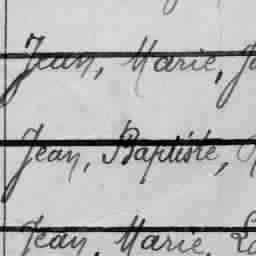 Jean, Marie,
Jean, Baptiste,
Jean, Marie,